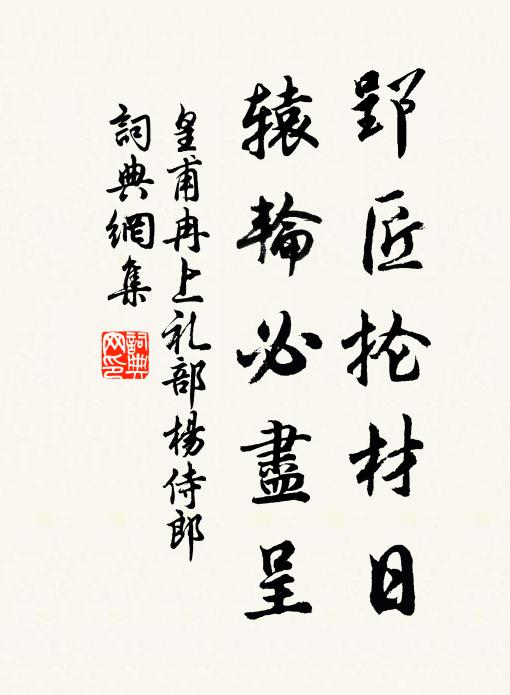 郢匠抡材日
辕輪必盡呈
皇甫冉上礼部楊侍郎
詞典網集
詞典网印